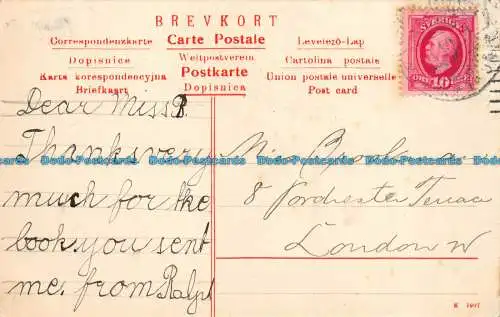 BREVKORT
Correspondenzkarte Carte Postale Levelező-Lap
Dopisnice Weltpostverein Cartolina postale
Karta korespondencyjna Postkarte Union postale universelle
Briefkaart Dopisnica Post card
SVERIGE
10
Dear Miss B.
Thanks very
much for the
book you sent
me. from Ralph
8 Porchester Terrace
London W
Dodo-Postcards Dodo-Postcards Dodo-Postcards Dodo-Postcards Dodo-Postcards